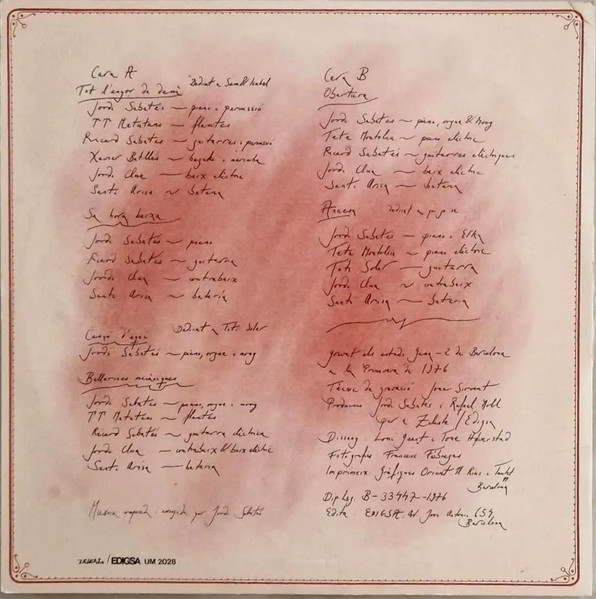 Cara A
Tot l'enyor de demà Dedicat a
Jordi Sabatés — piano i percussió
TT Metatans — flautes
Ricard Sabatés — guitarres i percussió
Xavier Batllés — baix
Jordi Clua — baix elèctric
Santi Arisa ~ bateria
Sa hora baixa
Jordi Sabatés — piano
Ricard Sabatés — guitarra
Jordi Clua — contrabaix
Santi Arisa — bateria
Dedicat a Toti Soler
Jordi Sabatés — piano, orgue i moog
Ballarines mecàniques
Jordi Sabatés — piano, orgue i moog
TT Metatans — flautes
Ricard Sabatés — guitarra elèctrica
Jordi Clua — contrabaix & baix elèctric
Santi Arisa — bateria
Música composta i arranjada per Jordi Sabatés
Cara B
Obertura
Jordi Sabatés — piano, orgue & Moog
Tete Montoliu ~ piano elèctric
Ricard Sabatés — guitarres elèctriques
Jordi Clua — baix elèctric
Santi Arisa — bateria
Dedicat a
Jordi Sabatés — piano i
Tete Montoliu ~ piano elèctric
Toti Soler — guitarra
Jordi Clua ~ contrabaix
Santi Arisa — bateria
gravat als estudis Gema-2 de Barcelona
a la Primavera de 1976
Tècnic de gravació Jose Sirvent
Producció Jordi Sabatés i Rafael Moll
per a Zeleste / Edigsa
Disseny i
Fotografia Francesc Fàbregas
Imprimeix Gràfiques Orient
Barcelona
Dip. leg. B-33447-1976
Edita EDIGSA
Barcelona
zeleste / EDIGSA UM 2028